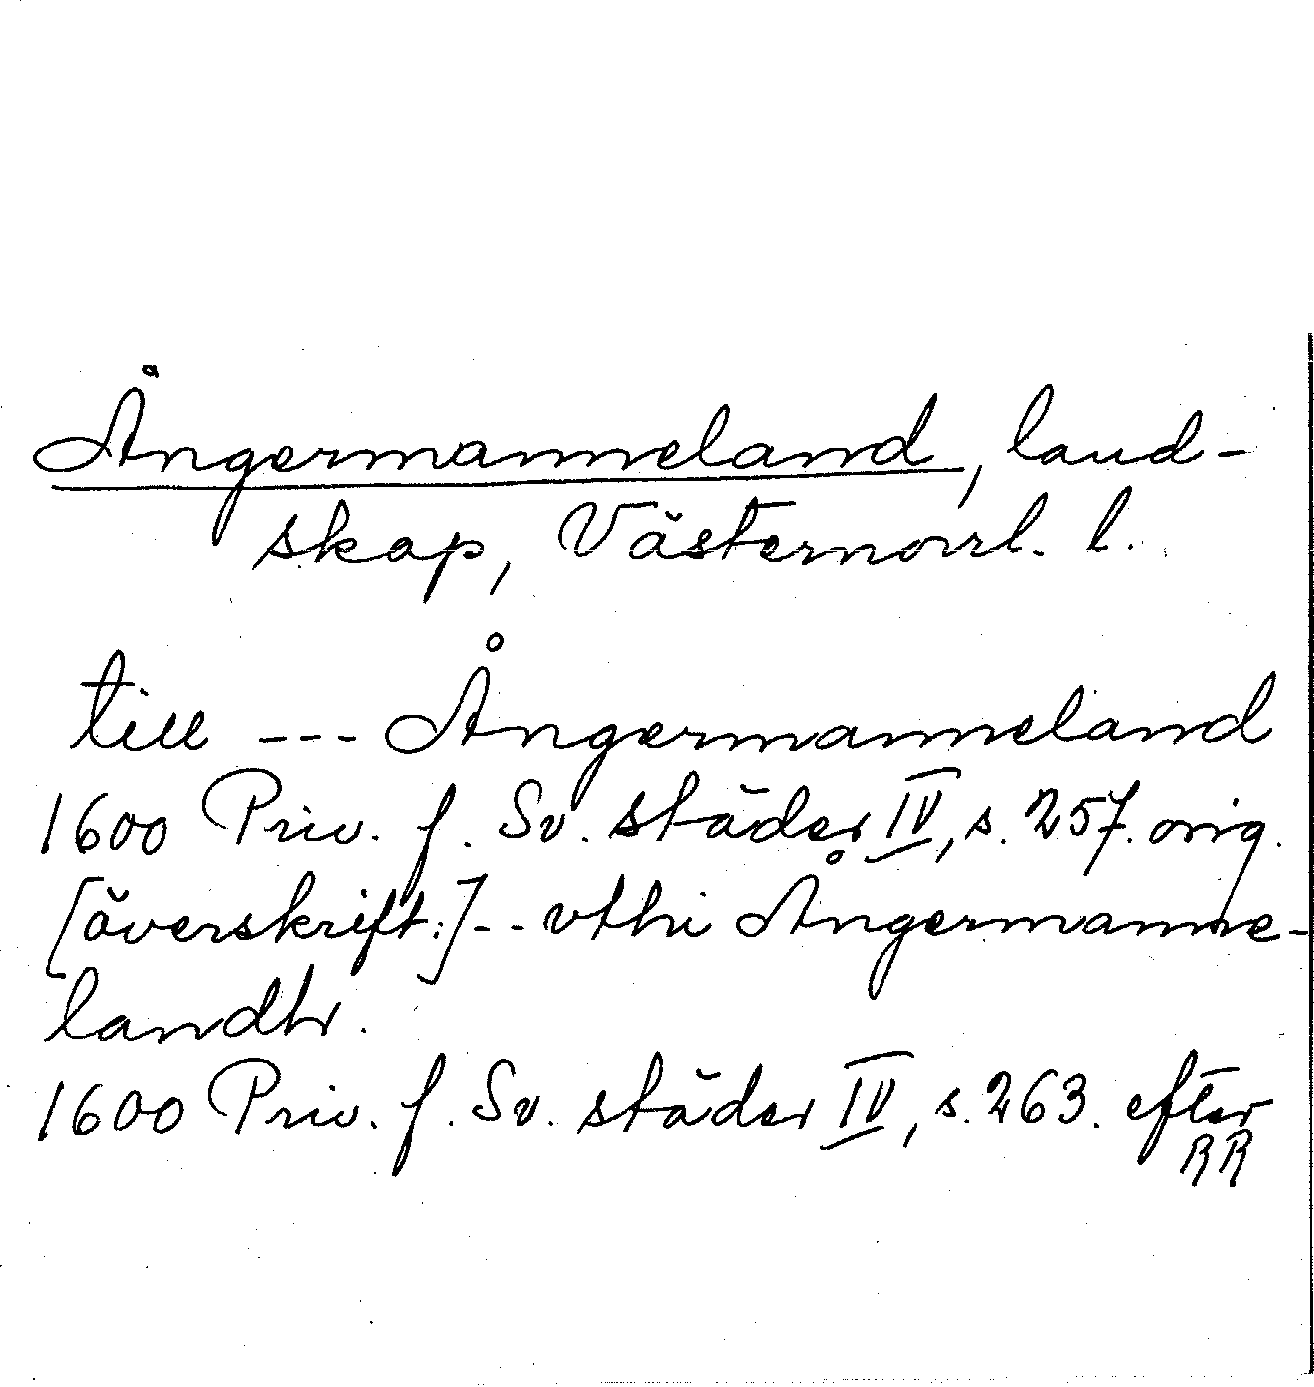 Ångermanneland, land-
skap, Västernorrl. l.
till --- Ångermanneland
1600 Priv. f. Sv. städer IV, s. 257. orig.
[överskrift:]-- vthi Ångermanne-
landh.
1600 Priv. f. Sv. städer IV, s. 263. efter
RR